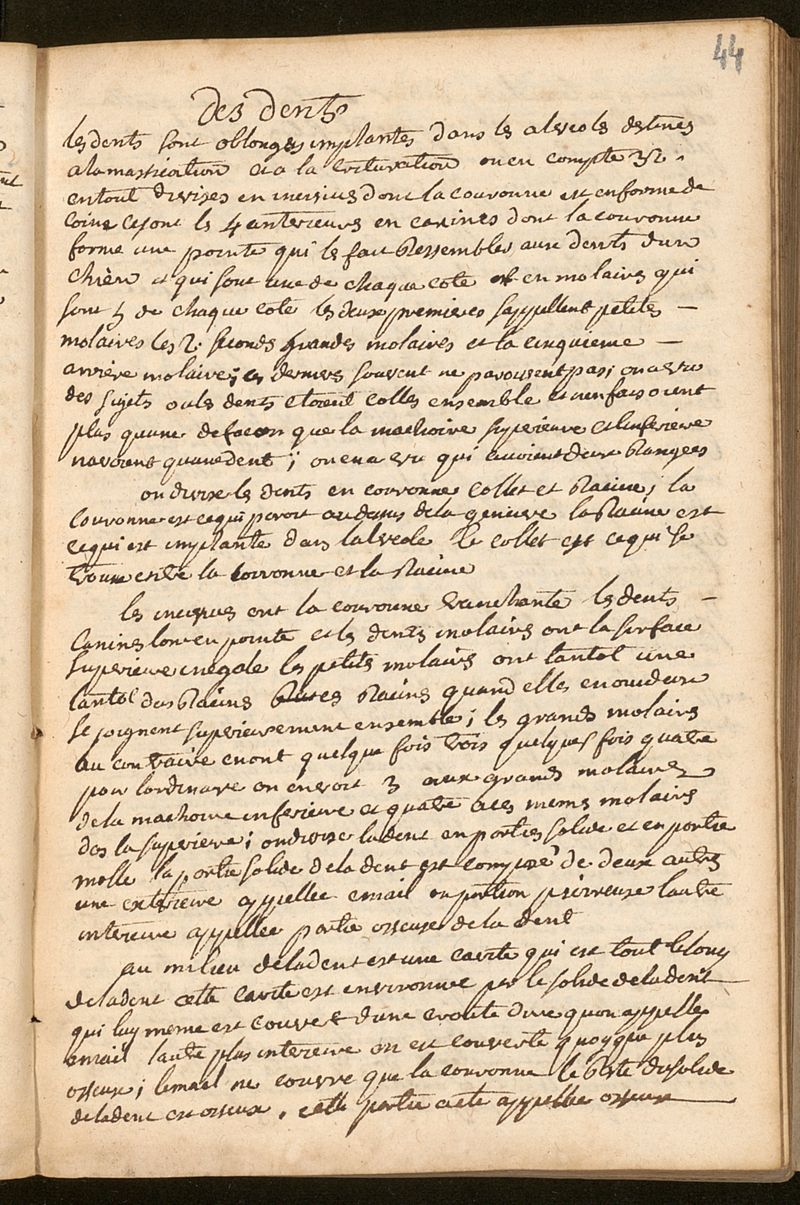 44
des dents
les dents sont oblongues implantés dans les alveoles destinés
a la mastication et a la trituration on en compte 32.
en tout divisés en incisives dont la couronne est en forme de
coins ce sont les 4 anterieurs en canines dont la couronne
forme une pointe qui les fait Ressembler aux dents dun
chien et qui sont une de chaque coté et en molaires qui
sont 5 de chaque coté les deux premieres sappellent petites —
molaires les 2. secondes grandes molaires et la cinquieme —
arriere molaire; ces dernieres souvent ne paroissent pas; on a vu
des sujets ou les dents etoient collés ensemble et nen faisoient
plus quune de facon que la machoire superieure et linferieure
navoient quune dent; on en a vu qui avoient deux Rangées
on divise les dents en couronne collet et Racine; la
couronne est ce qui paroit au dessus de la gencive la Racine est
ce qui est implanté dans lalveole le collet est ce qui se
trouve entre la couronne et la Racine
les incisives ont la couronne tranchante les dents —
canines lont en pointe et les dents molaires ont la surface
superieure inegale les petites molaires ont tantot une
tantot deux Racines Racines quand elles en ont deux
se joignent superieurement ensemble; les grandes molaires
au contraire en ont quelque fois trois quelques fois quatre
pour lordinaire on en voit 3 aux grandes molaires
de la machoire inferieure et quatre a ces memes molaires
de la superieure; on divise la dent en parties solide et en partie
molle la partie solide de la dent est composé de deux autres
une exterieure appellée email ou portion pierreuse lautre
interieure appellée partie osseuse de la dent
au milieu de la dent est une cavité qui est tout le long
de la dent cette cavité est environnée par le solide de la dent
qui luy meme est couvert dune croute dure quon appelle
email lautre plus interieure en est couverte quoyque plus
osseuse; lemail ne couvre que la couronne le Reste du solide
de la dent est osseux, cette partie a eté appellée osseuse —